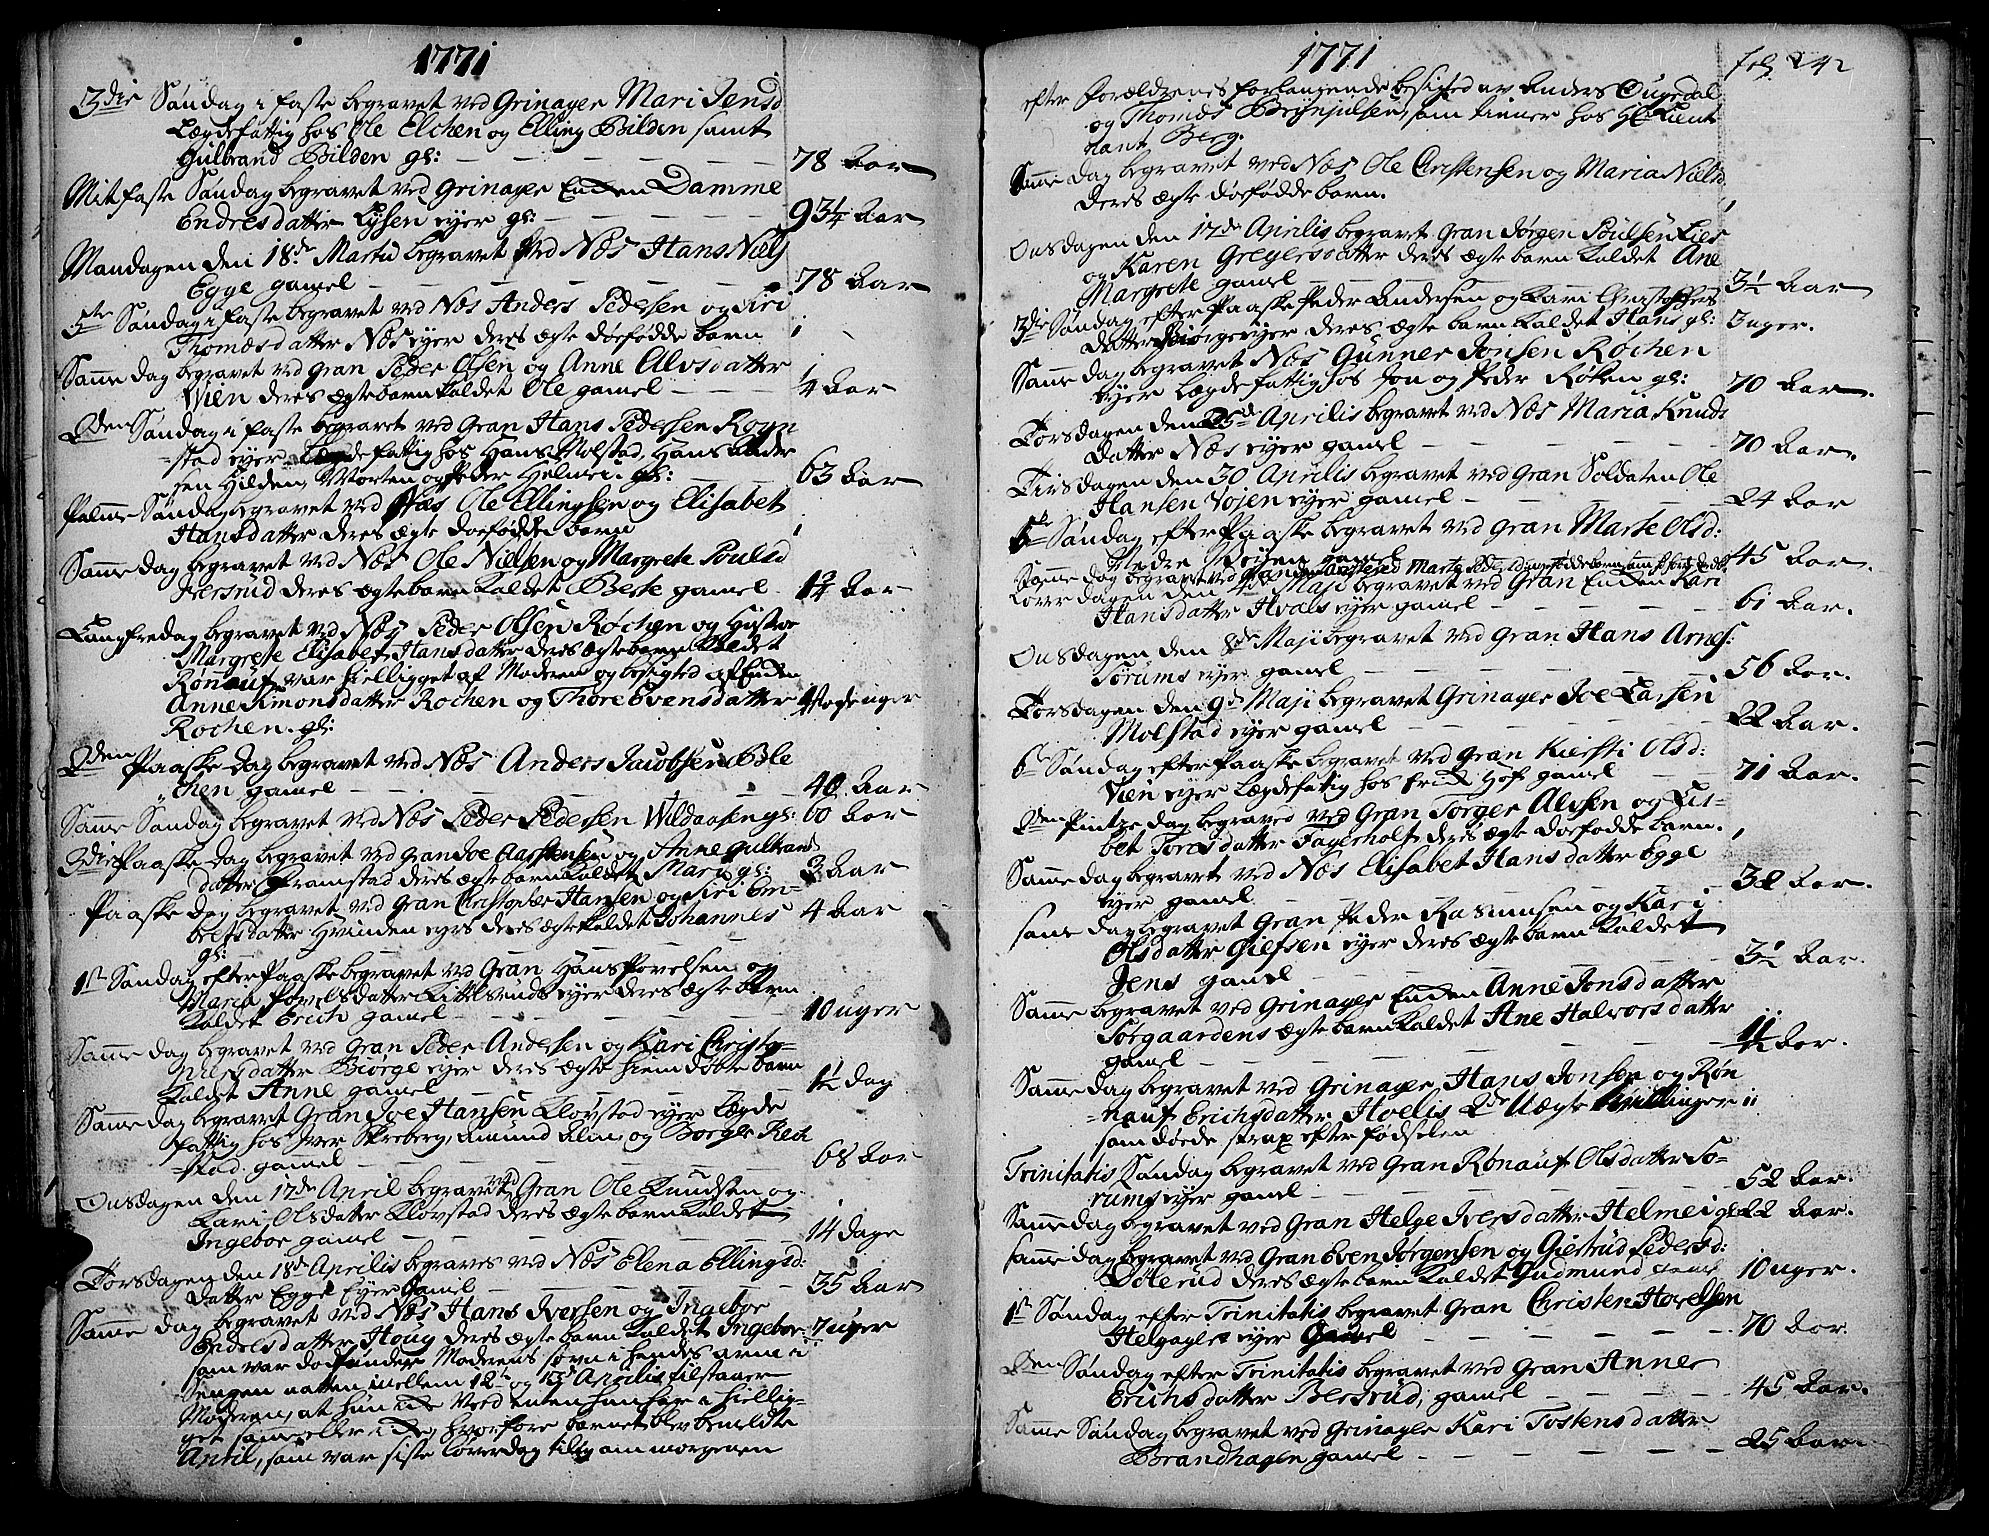 1771
3die Søndag i faste begravet ved Grinager Mari Jensd
Lægdefattig hos Ole Elchen og Elling Bilden samt
Gulbrand Bilden gl: 78 Aar
Mitfaste Søndag begravet ved Grinager Enken Damme
Endresdatter Lysen eyer gl: 93¼ Aar
Mandagen den 18de Martii begravet ved Næs Hans Niels
Egge gamel 78 Aar
5te Søndag i faste begravet ved Næs Anders Pedersen og Siri
Thomæsdatter Næs eyer deres ægte døfødde barn 1
Samme dag begravet ved Gran Peder Olsen og Anne Alvsdatter
Vien deres ægte barn kaldet Ole gamel ¼ Aar
2den Søndag i faste begravet ved Gran Hans Pedersen Rogn
stad eyer Lægdefattig hos Hans Molstad, Hans Ander
sen Hilden, Morten og Peder Helmei gl: 63 Aar
Palme Søndag begravet ved Næs Ole Ellingsen og Elisabet
Hansdatter deres ægte døfødde barn 1
Samme dag begravet ved Næs Ole Nielsen og Margrete Poulsd
Iversrud deres ægte barn kaldet Berte gamel 1¾ Aar
Langfredag begravet ved Næs Peder Olsen Røchen og Hustroe
Margrete Elisabet Hansdatter deres ægte barn kaldet
Rønauf var hielligget af Moderen og besigted af Enken
Anne Simonsdatter Røchen og Thore Evensdatter
Rochen. gl:
2den Paaske dag begravet ved Næs Anders Jacobsen Ble
chen gamel 40 Aar
Samme Søndag begravet ved Næs Peder Pedersen Wildaasen gl: 60 Aar
3die Paaske dag begravet ved Gran Joe Carstensen og Anne Gulbrands
datter Framstad deres ægte barn kaldet Mari gl: 3 Aar
Paaske dag begravet ved Gran Christopher Hansen og Siri En-
bretsdatter Hvinden eyrs deres ægte kaldet Johannes
gl: 4 Aar
1ste Søndag efter Paaske begravet ved Gran Hans Povelsen og
Maria Povelsdatter Kittelsruds eyer deres ægte barn
kaldet Erich gamel 10 uger
Samme dag begravet ved Gran Peder Andersen og Kari Christo-
phersdatter Biørge eyer deres ægte hiemdøbte barn
kaldet Anne gamel 1½ dag
Samme dag begravet Gran Joe Hansen Klovstad eyer Lægde
fattig hos Iver Skreberg, Amund Alm, og Borger Rech
stad. gamel 68 Aar
Onsdagen den 17de April begravet ved Gran Ole Knudsen og
Kari Olsdatter Klovstad deres ægte barn kaldet
Ingebor gamel 14 dage
Torsdagen den 18de Aprilis begraves ved Næs Elena Ellingsd:
datter Egge Eyer Gamel 35 Aar
Samme dag begravet ved Næs Hans Iversen og Ingebor
Endelsdatter Houg deres ægte barn kaldet Ingebor 7 uger
som var død funden Moderens søvn i hendes arme i
Sengen natten mellem 12te og 13de Aprilis tilstaaer
Moderen, at hun icke veed enten hun har i hiellig-
get samme eller icke, hvorfore barnet blev bemeldte
April, som var siste Løverdag tillig om morgenen
1771
fol: 242
efter Forældrenes forlangende besigted av Anders Ougedal
og Thomas Brynjulsen, som tiener hos Hr Lieut
nant Berg.
Samme dag begravet ved Næs Ole Christensen og Maria Nielsd
deres ægte døfødde barn. 1
Onsdagen den 17de Aprilis begravet Gran Jørgen Poulsen Lier
og Karen Gregersdatter deres ægte barn kaldet Ane
Margrete gamel 3½ Aar
3die Søndag efter Paaske Peder Andersen og Kari Christophers
datter Biørge eyer deres ægte barn kaldet Hans gl: 3 uger.
Samme dag begravet Næs Gunner Jonsen Røchen
eyer Lægdefattig hos Jon og Peder Røken gl: 70 Aar.
Torsdagen den 25de Aprilis begravet ved Næs Maria Knuds
datter Næs eyer gamel 70 Aar.
Tirsdagen den 30 Aprilis begravet ved Gran Soldaten Ole
Hansen Vøjen eyer gamel 24 Aar
5te Søndag efter Paaske begravet ved Gran Marte Olsd:
Nedre Vøyen gamel 45 Aar.
Samme dag begravet ved
Løverdagen den 4de Maji begravet ved Gran Enken Kari
Hansdatter Hvals eyer gamel 61 Aar.
Onsdagen den 8de Maji begravet ved Gran Hans Arnes:
Sørums eyer gamel 56 Aar.
Torsdagen den 9de Maji begravet Grinager Joe Larsen
Molstad eyer gamel 22 Aar.
6te Søndag efter Paaske begravet ved Gran Kiersti Olsd:
Vien eyer Lægdefatig hos Frid Hof gamel 71 Aar.
2den Pintze dag begraved ved Gran Torger Alvsen og Lis-
bet Toresdatter Fagerholt deres ægte døfødde barn. 1
Samme dag begravet ved Næs Elisabet Hansdatter Egge
eyer gamel 38 Aar.
same dag begravet Gran Peder Rasmusen og Kari
Olsdatter Gielsen eyer deres ægte barn kaldet
Jens gamel 3½ Aar.
Samme begravet ved Grinager Enken Anne Jonsdatter
Sørgaardens ægte barn kaldet Ane Halvorsdatter
gamel 11 Aar.
Samme dag begravet ved Grinager, Hans Jonsen og Røn
nauf Erichsdatter Hoelis 2de Uægte Tvillinger 11
som døede strax efter fødselen
Trinitatis Søndag begravet ved Gran Rønauf Olsdatter So-
rums eyer gamel 52 Aar.
Samme dag begravet ved Gran Helge Iversdatter Helmei gl 22 Aar.
samme dag begravet ved Gran Even Jørgensen og Giertrud Pedersd:
Dølerud deres ægte barn kaldet Gudmund gamel 10 uger.
1ste Søndag efter Trinitatis begravet Gran Christen Hovelsen
Helgager eyer Gamel 70 Aar.
2den Søndag efter Trinitatis begravet ved Gran Anne
Erichsdatter Bersrud, gamel 45 Aar.
Samme Søndag begravet ved Grinager Kari Tostensdatter
Brandhagen gamel 25 Aar.